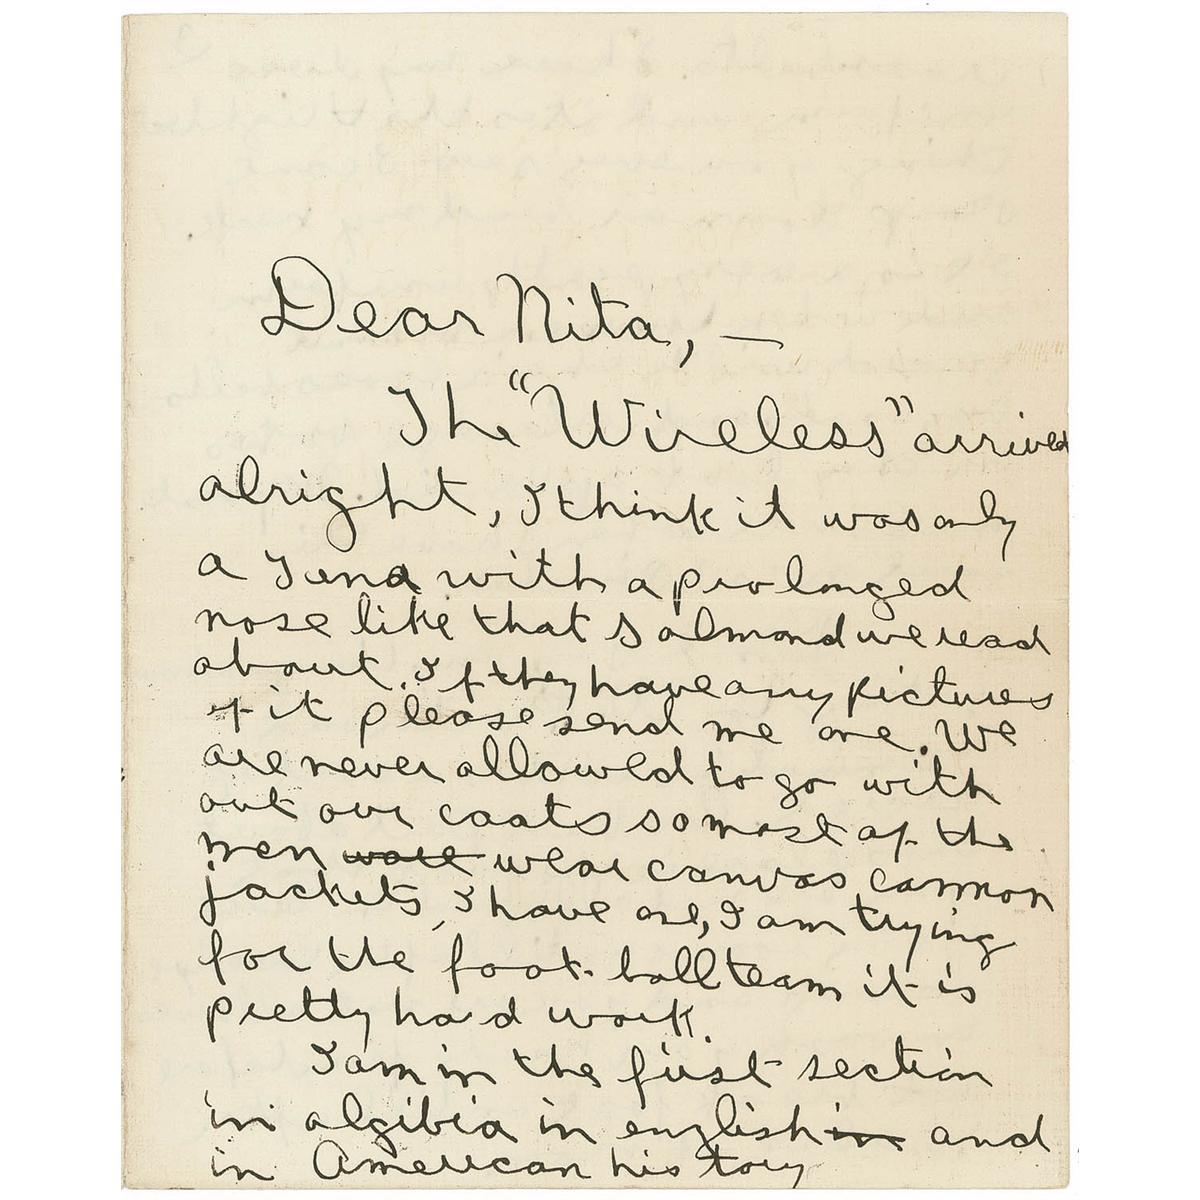 Dear Nita, —
The "Wireless" arrived
alright, I think it was only
a Tuna with a prolonged
nose like that Salmond we read
about. If they have any pictures
of it please send me one. We
are never allowed to go with
out our coats so most of the
men wore wear canvas cannon
jackets, I have one, I am trying
for the foot-ball team it is
pretty hard work.
I am in the first section
in algibia in english in and
in American history